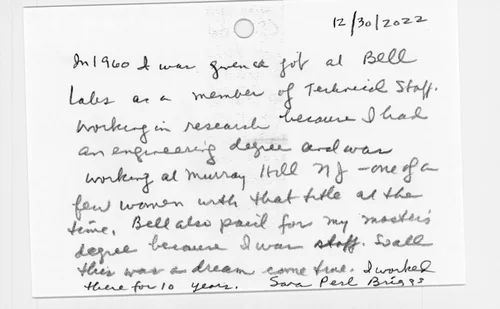 12/30/2022
In 1960 I was given a job at Bell
Labs as a member of Technical Staff.
Working in research because I had
an engineering degree and was
working at Murray Hill NJ - one of a
few women with that title at the
time. Bell also paid for my master's
degree because I was staff. So all
this was a dream come true. I worked
there for 10 years. Sara Perl Briggs